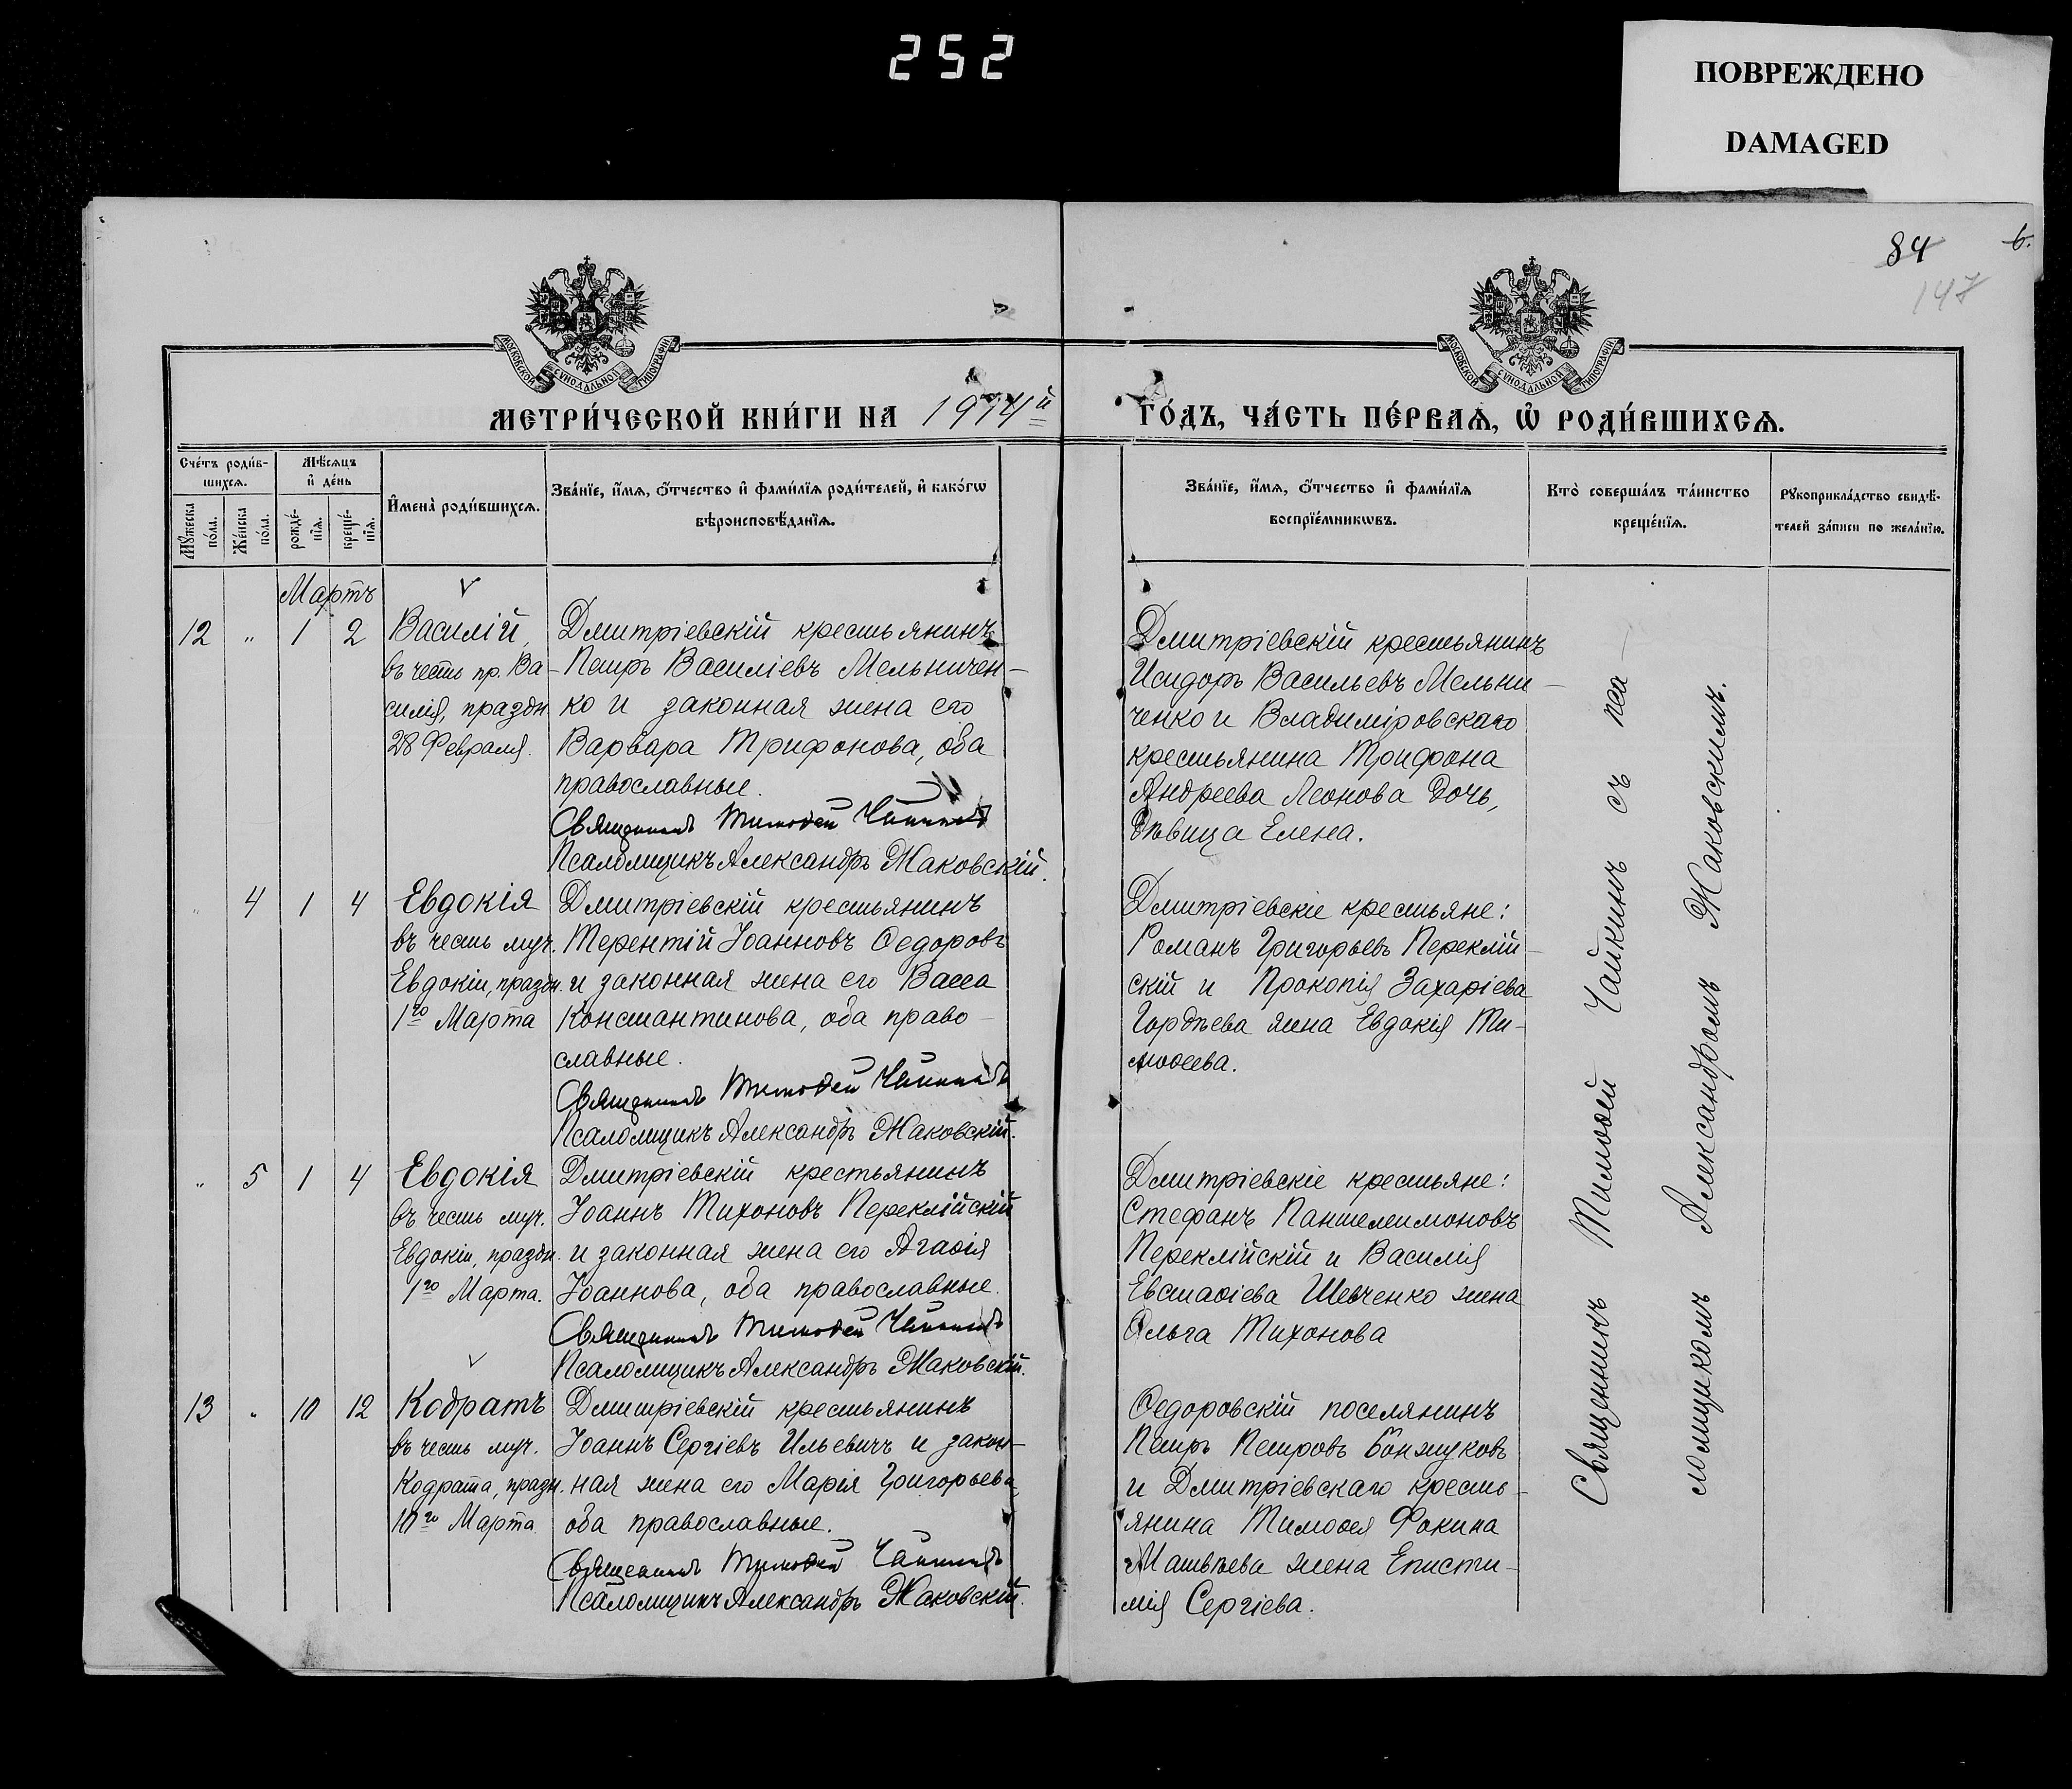 252
ПОВРЕЖДЕНО
DAMAGED
84
6.
147
МОСКОВСКОЙ СУНОДАЛЬНОЙ ТИПОГРАФІИ
МОСКОВСКОЙ СУНОДАЛЬНОЙ ТИПОГРАФІИ
МЕТРИ́ЧЕСКОЙ КНИ́ГИ НА 1914й
ГО́ДЪ, ЧА́СТЬ ПЕ́РВАѦ, Ѡ҆ РОДИ́ВШИХСѦ.
Сче́тъ роди́в-
шихсѧ.
Мѣ́сѧцъ
и҆ де́нь
Мꙋ́жеска по́ла.
Же́нска по́ла.
рожде́-
нїѧ.
креще́-
нїѧ.
И҆мена̀ роди́вшихсѧ.
Зва́нїе, и҆́мѧ, ѻ҆́тчество и҆ фами́лїѧ роди́телей, и҆ како́гѡ
вѣроисповѣ́данїѧ.
Зва́нїе, и҆́мѧ, ѻ҆́тчество и҆ фами́лїѧ
воспрїе́мникѡвъ.
Кто̀ соверша́лъ та́инство
креще́нїѧ.
Рꙋкоприкла́дство свидѣ́-
телей за́писи по жела́нїю.
Мартъ
12 " 1 2 Василій,
въ честь пр. Ва-
силія, праздн.
28 Февраля.
Дмитріевскій крестьянинъ
Петръ Василіевъ Мельничен-
ко и законная жена его
Варвара Трифонова, оба
православные.
Священникъ Тимоѳей Чайкинъ
Псаломщикъ Александръ Жаковскій.
Дмитріевскій крестьянинъ
Исидоръ Васильевъ Мельни-
ченко и Владиміровскаго
крестьянина Трифона
Андреева Леонова дочь,
дѣвица Елена.
" 4 1 4 Евдокія
въ честь муч.
Евдокіи, праздн.
1го Марта
Дмитріевскій крестьянинъ
Терентій Іоанновъ Ѳедоровъ
и законная жена его Васса
Константинова, оба право-
славные.
Священникъ Тимоѳей Чайкинъ
Псаломщикъ Александръ Жаковскій.
Дмитріевскіе крестьяне:
Романъ Григорьевъ Переклій-
скій и Прокопія Захаріева
Гордѣева жена Евдокія Ти-
моѳеева.
" 5 1 4 Евдокія
въ честь муч.
Евдокіи, праздн.
1го Марта.
Дмитріевскій крестьянинъ
Іоаннъ Тихоновъ Переклійскій
и законная жена его Агаѳія
Іоаннова, оба православные.
Священникъ Тимоѳей Чайкинъ
Псаломщикъ Александръ Жаковскій.
Дмитріевскіе крестьяне:
Стефанъ Пантелеимоновъ
Переклійскій и Василія
Евстаѳіева Шевченко жена
Ольга Тихонова
13 " 10 12 Кодратъ
въ честь муч.
Кодрата, праздн.
10го Марта
Дмитріевскій крестьянинъ
Іоаннъ Сергіевъ Ильевичъ и закон-
ная жена его Марія Григорьева,
оба православные.
Священникъ Тимоѳей Чайкинъ
Псаломщикъ Александръ Жаковскій.
Ѳедоровскій поселянинъ
Петръ Петровъ Бонжуковъ
и Дмитріевскаго кресть-
янина Тимоѳея Фокина
Матвѣева жена Еписти-
мія Сергіева.
Священникъ Тимоѳей Чайкинъ съ пса-
ломщикомъ Александромъ Жаковскимъ.